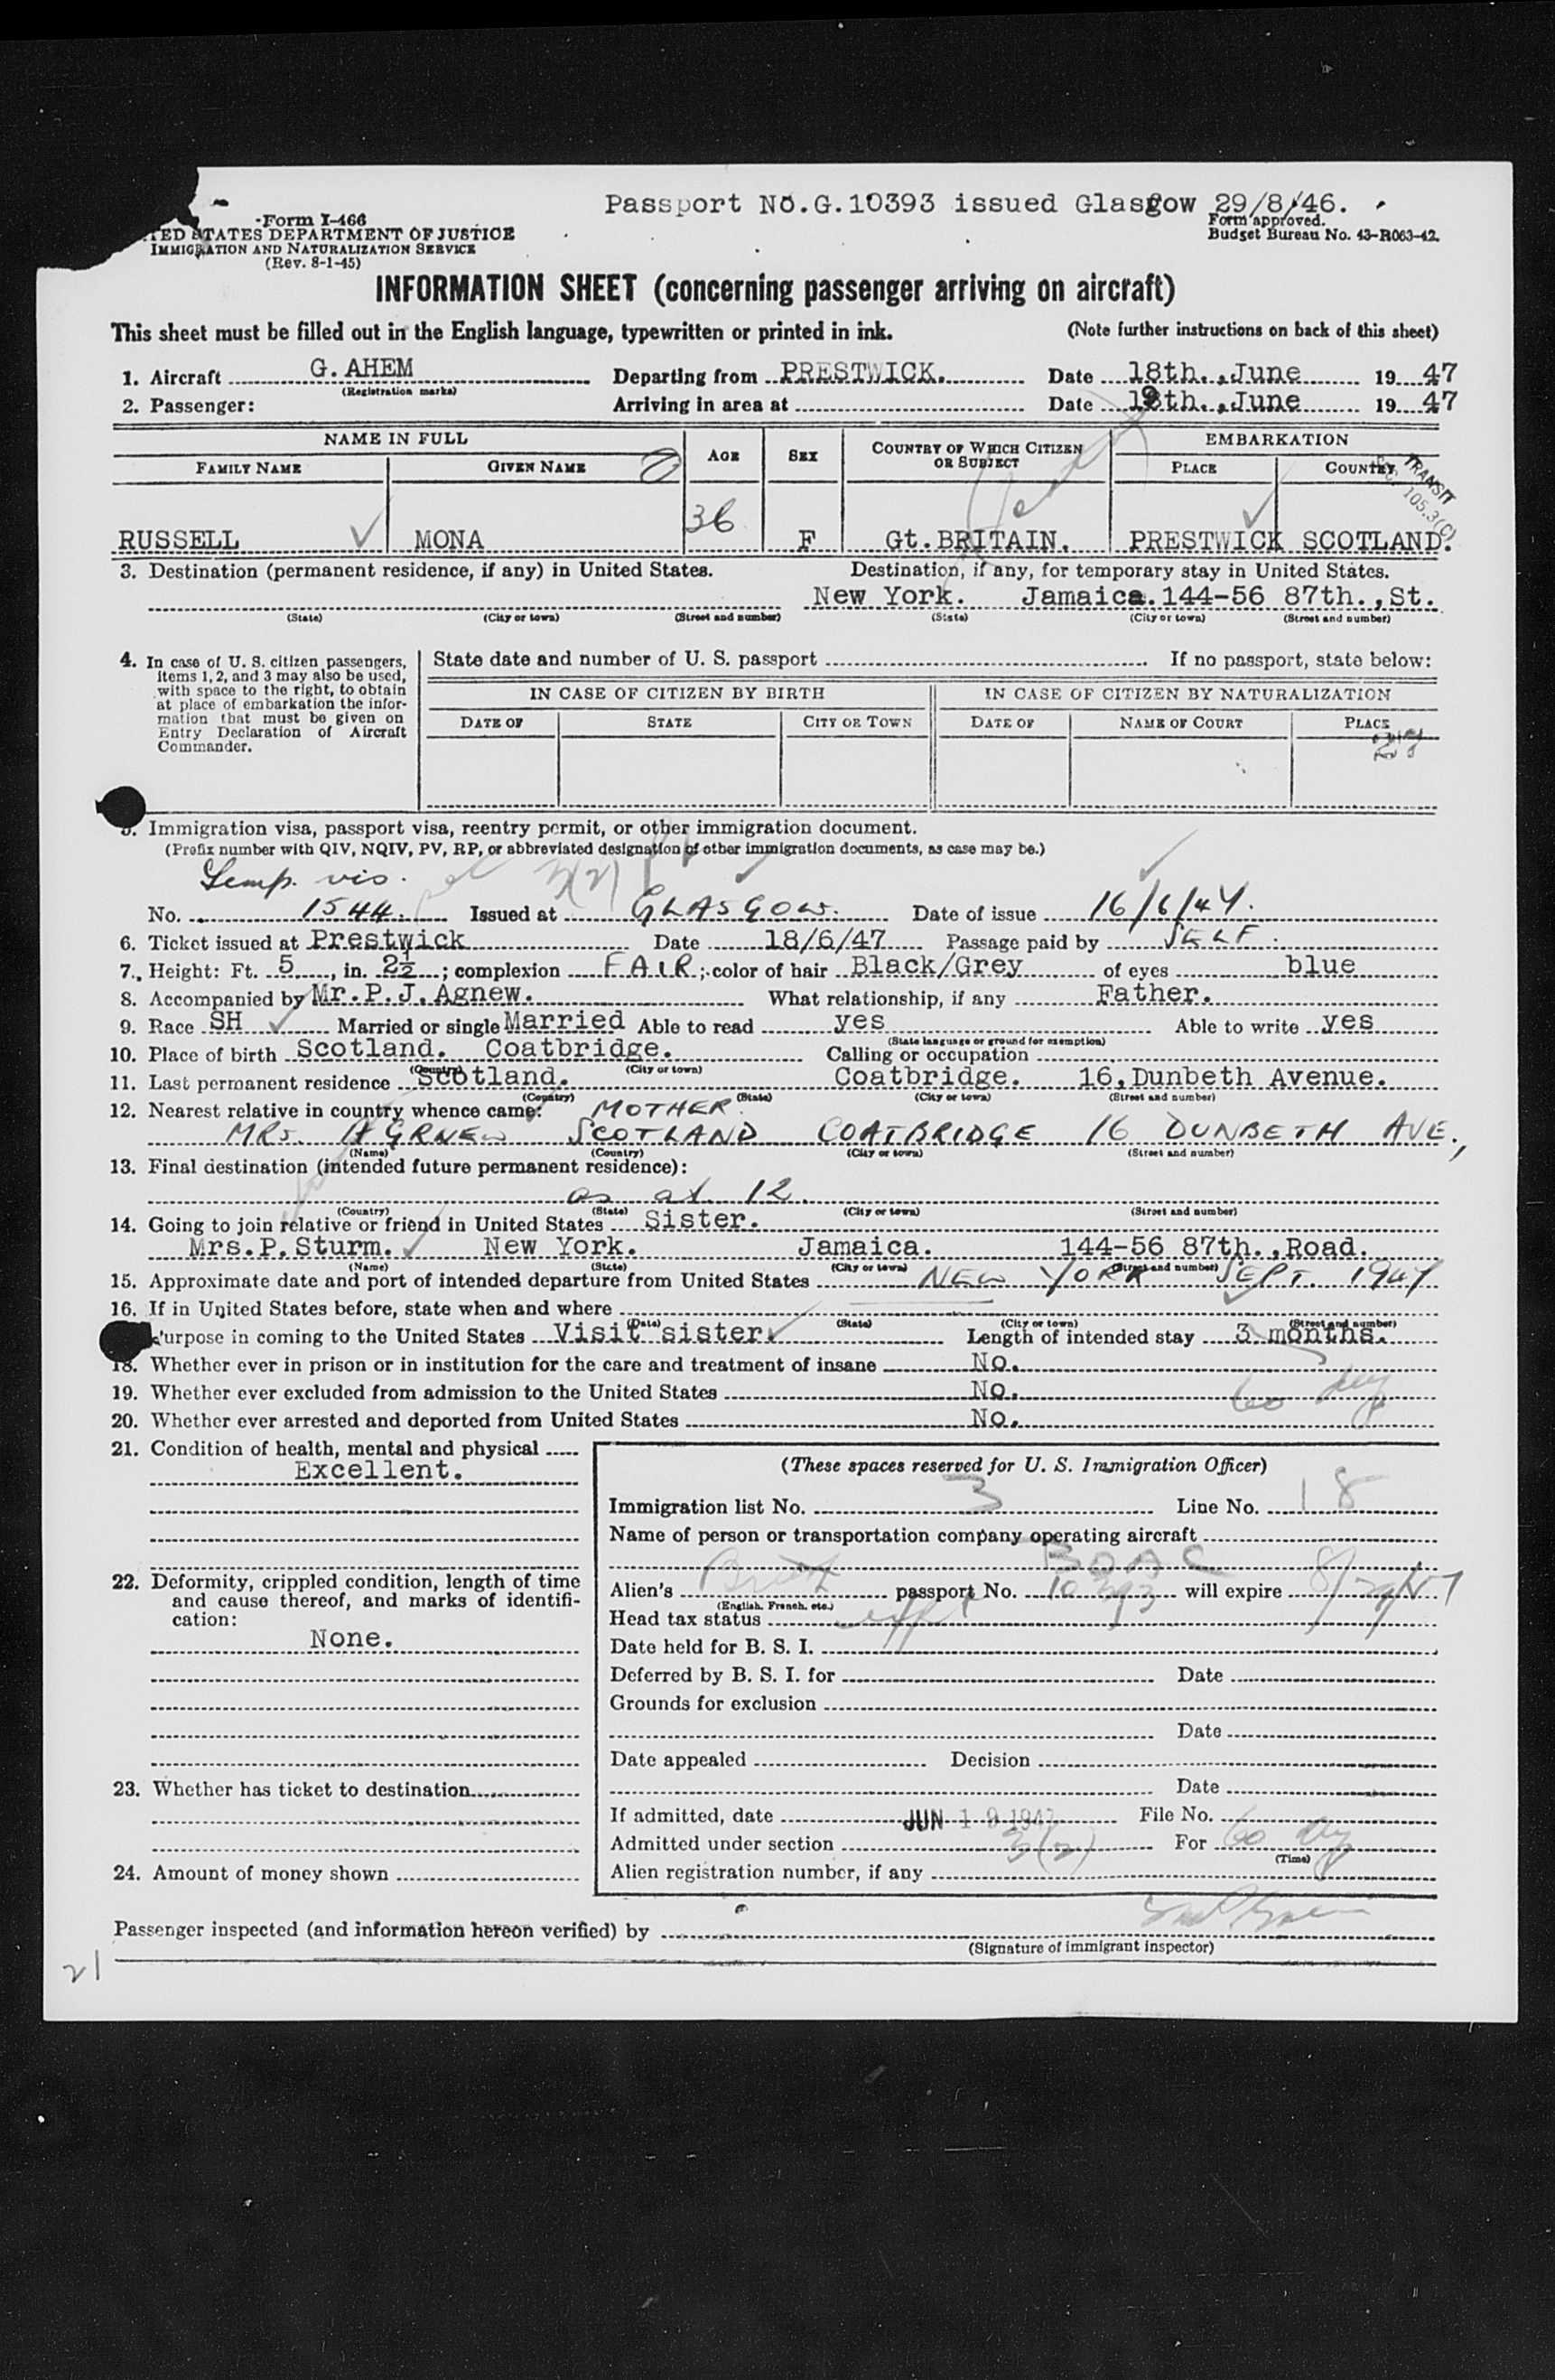 Passport NO.G.10393 issued Glasgow 29/8/46.
Form I-466
TED STATES DEPARTMENT OF JUSTICE
IMMIGRATION AND NATURALIZATION SERVICE
(Rev. 8-1-45)
Form approved.
Budget Bureau No. 43-R063-42.
INFORMATION SHEET (concerning passenger arriving on aircraft)
This sheet must be filled out in the English language, typewritten or printed in ink. (Note further instructions on back of this sheet)
1. Aircraft G.AHEM Departing from PRESTWICK. Date 18th.,June 1947
(Registration marks)
2. Passenger: Arriving in area at Date 19th.,June 1947
NAME IN FULL AGE SEX COUNTRY OF WHICH CITIZEN OR SUBJECT EMBARKATION
FAMILY NAME GIVEN NAME PLACE COUNTRY
TRANSIT
105.3(C)
RUSSELL MONA 36 F Gt.BRITAIN. PRESTWICK SCOTLAND.
3. Destination (permanent residence, if any) in United States. Destination, if any, for temporary stay in United States.
New York. Jamaica.144-56 87th.,St.
(State) (City or town) (Street and number) (State) (City or town) (Street and number)
4. In case of U. S. citizen passengers, items 1, 2, and 3 may also be used, with space to the right, to obtain at place of embarkation the information that must be given on Entry Declaration of Aircraft Commander.
State date and number of U. S. passport If no passport, state below:
IN CASE OF CITIZEN BY BIRTH IN CASE OF CITIZEN BY NATURALIZATION
DATE OF STATE CITY OR TOWN DATE OF NAME OF COURT PLACE
5. Immigration visa, passport visa, reentry permit, or other immigration document.
(Prefix number with QIV, NQIV, PV, RP, or abbreviated designation of other immigration documents, as case may be.)
Temp. vis. 3(2)
No. 1544. Issued at GLASGOW. Date of issue 16/6/47.
6. Ticket issued at Prestwick Date 18/6/47 Passage paid by SELF.
7. Height: Ft. 5, in. 2½; complexion FAIR; color of hair Black/Grey of eyes blue
8. Accompanied by Mr.P.J.Agnew. What relationship, if any Father.
9. Race SH Married or single Married Able to read yes Able to write yes
(State language or ground for exemption)
10. Place of birth Scotland. Coatbridge. Calling or occupation
(Country) (City or town)
11. Last permanent residence Scotland. Coatbridge. 16,Dunbeth Avenue.
(Country) (State) (City or town) (Street and number)
12. Nearest relative in country whence came: MOTHER.
MRS. AGRNEW SCOTLAND COATBRIDGE 16 DUNBETH AVE.,
(Name) (Country) (City or town) (Street and number)
13. Final destination (intended future permanent residence):
as at 12.
(Country) (State) (City or town) (Street and number)
14. Going to join relative or friend in United States Sister.
Mrs.P.Sturm. New York. Jamaica. 144-56 87th.,Road.
(Name) (State) (City or town) (Street and number)
15. Approximate date and port of intended departure from United States NEW YORK SEPT. 1947
16. If in United States before, state when and where
(Date) (State) (City or town) (Street and number)
Purpose in coming to the United States Visit sister. Length of intended stay 3 months.
18. Whether ever in prison or in institution for the care and treatment of insane No.
19. Whether ever excluded from admission to the United States No.
20. Whether ever arrested and deported from United States No.
21. Condition of health, mental and physical
Excellent.
22. Deformity, crippled condition, length of time and cause thereof, and marks of identification:
None.
23. Whether has ticket to destination
24. Amount of money shown
(These spaces reserved for U. S. Immigration Officer)
Immigration list No. 3 Line No. 18
Name of person or transportation company operating aircraft
BOAC
Alien's British passport No. 10393 will expire 8/29/47
(English, French, etc.)
Head tax status
Date held for B. S. I.
Deferred by B. S. I. for Date
Grounds for exclusion
Date
Date appealed Decision
Date
If admitted, date JUN 19 1947 File No.
Admitted under section 3(2) For 60 dys
(Time)
Alien registration number, if any
Passenger inspected (and information hereon verified) by
(Signature of immigrant inspector)
21